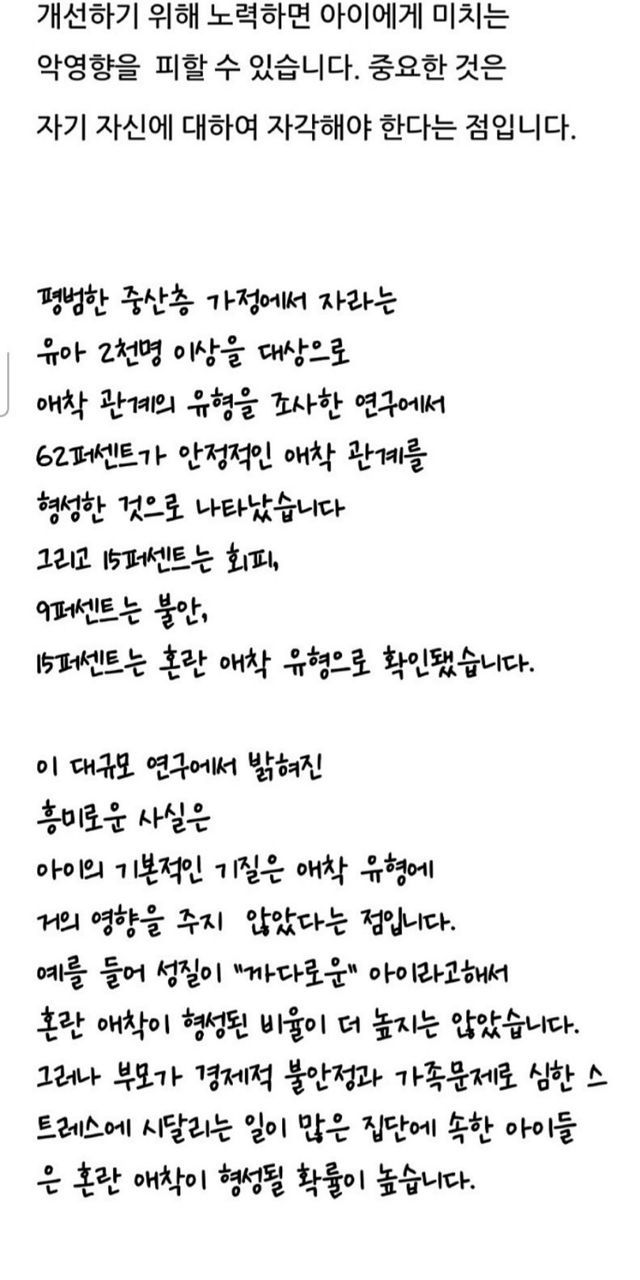 개선하기 위해 노력하면 아이에게 미치는
악영향을 피할 수 있습니다. 중요한 것은
자기 자신에 대하여 자각해야 한다는 점입니다.
평범한 중산층 가정에서 자라는
유아 2천명 이상을 대상으로
애착 관계의 유형을 조사한 연구에서
62퍼센트가 안정적인 애착 관계를
형성한 것으로 나타났습니다
그리고 15퍼센트는 회피,
9퍼센트는 불안,
15퍼센트는 혼란 애착 유형으로 확인됐습니다.
이 대규모 연구에서 밝혀진
흥미로운 사실은
아이의 기본적인 기질은 애착 유형에
거의 영향을 주지 않았다는 점입니다.
예를 들어 성질이 "까다로운" 아이라고해서
혼란 애착이 형성된 비율이 더 높지는 않았습니다.
그러나 부모가 경제적 불안정과 가족문제로 심한 스
트레스에 시달리는 일이 많은 집단에 속한 아이들
은 혼란 애착이 형성될 확률이 높습니다.